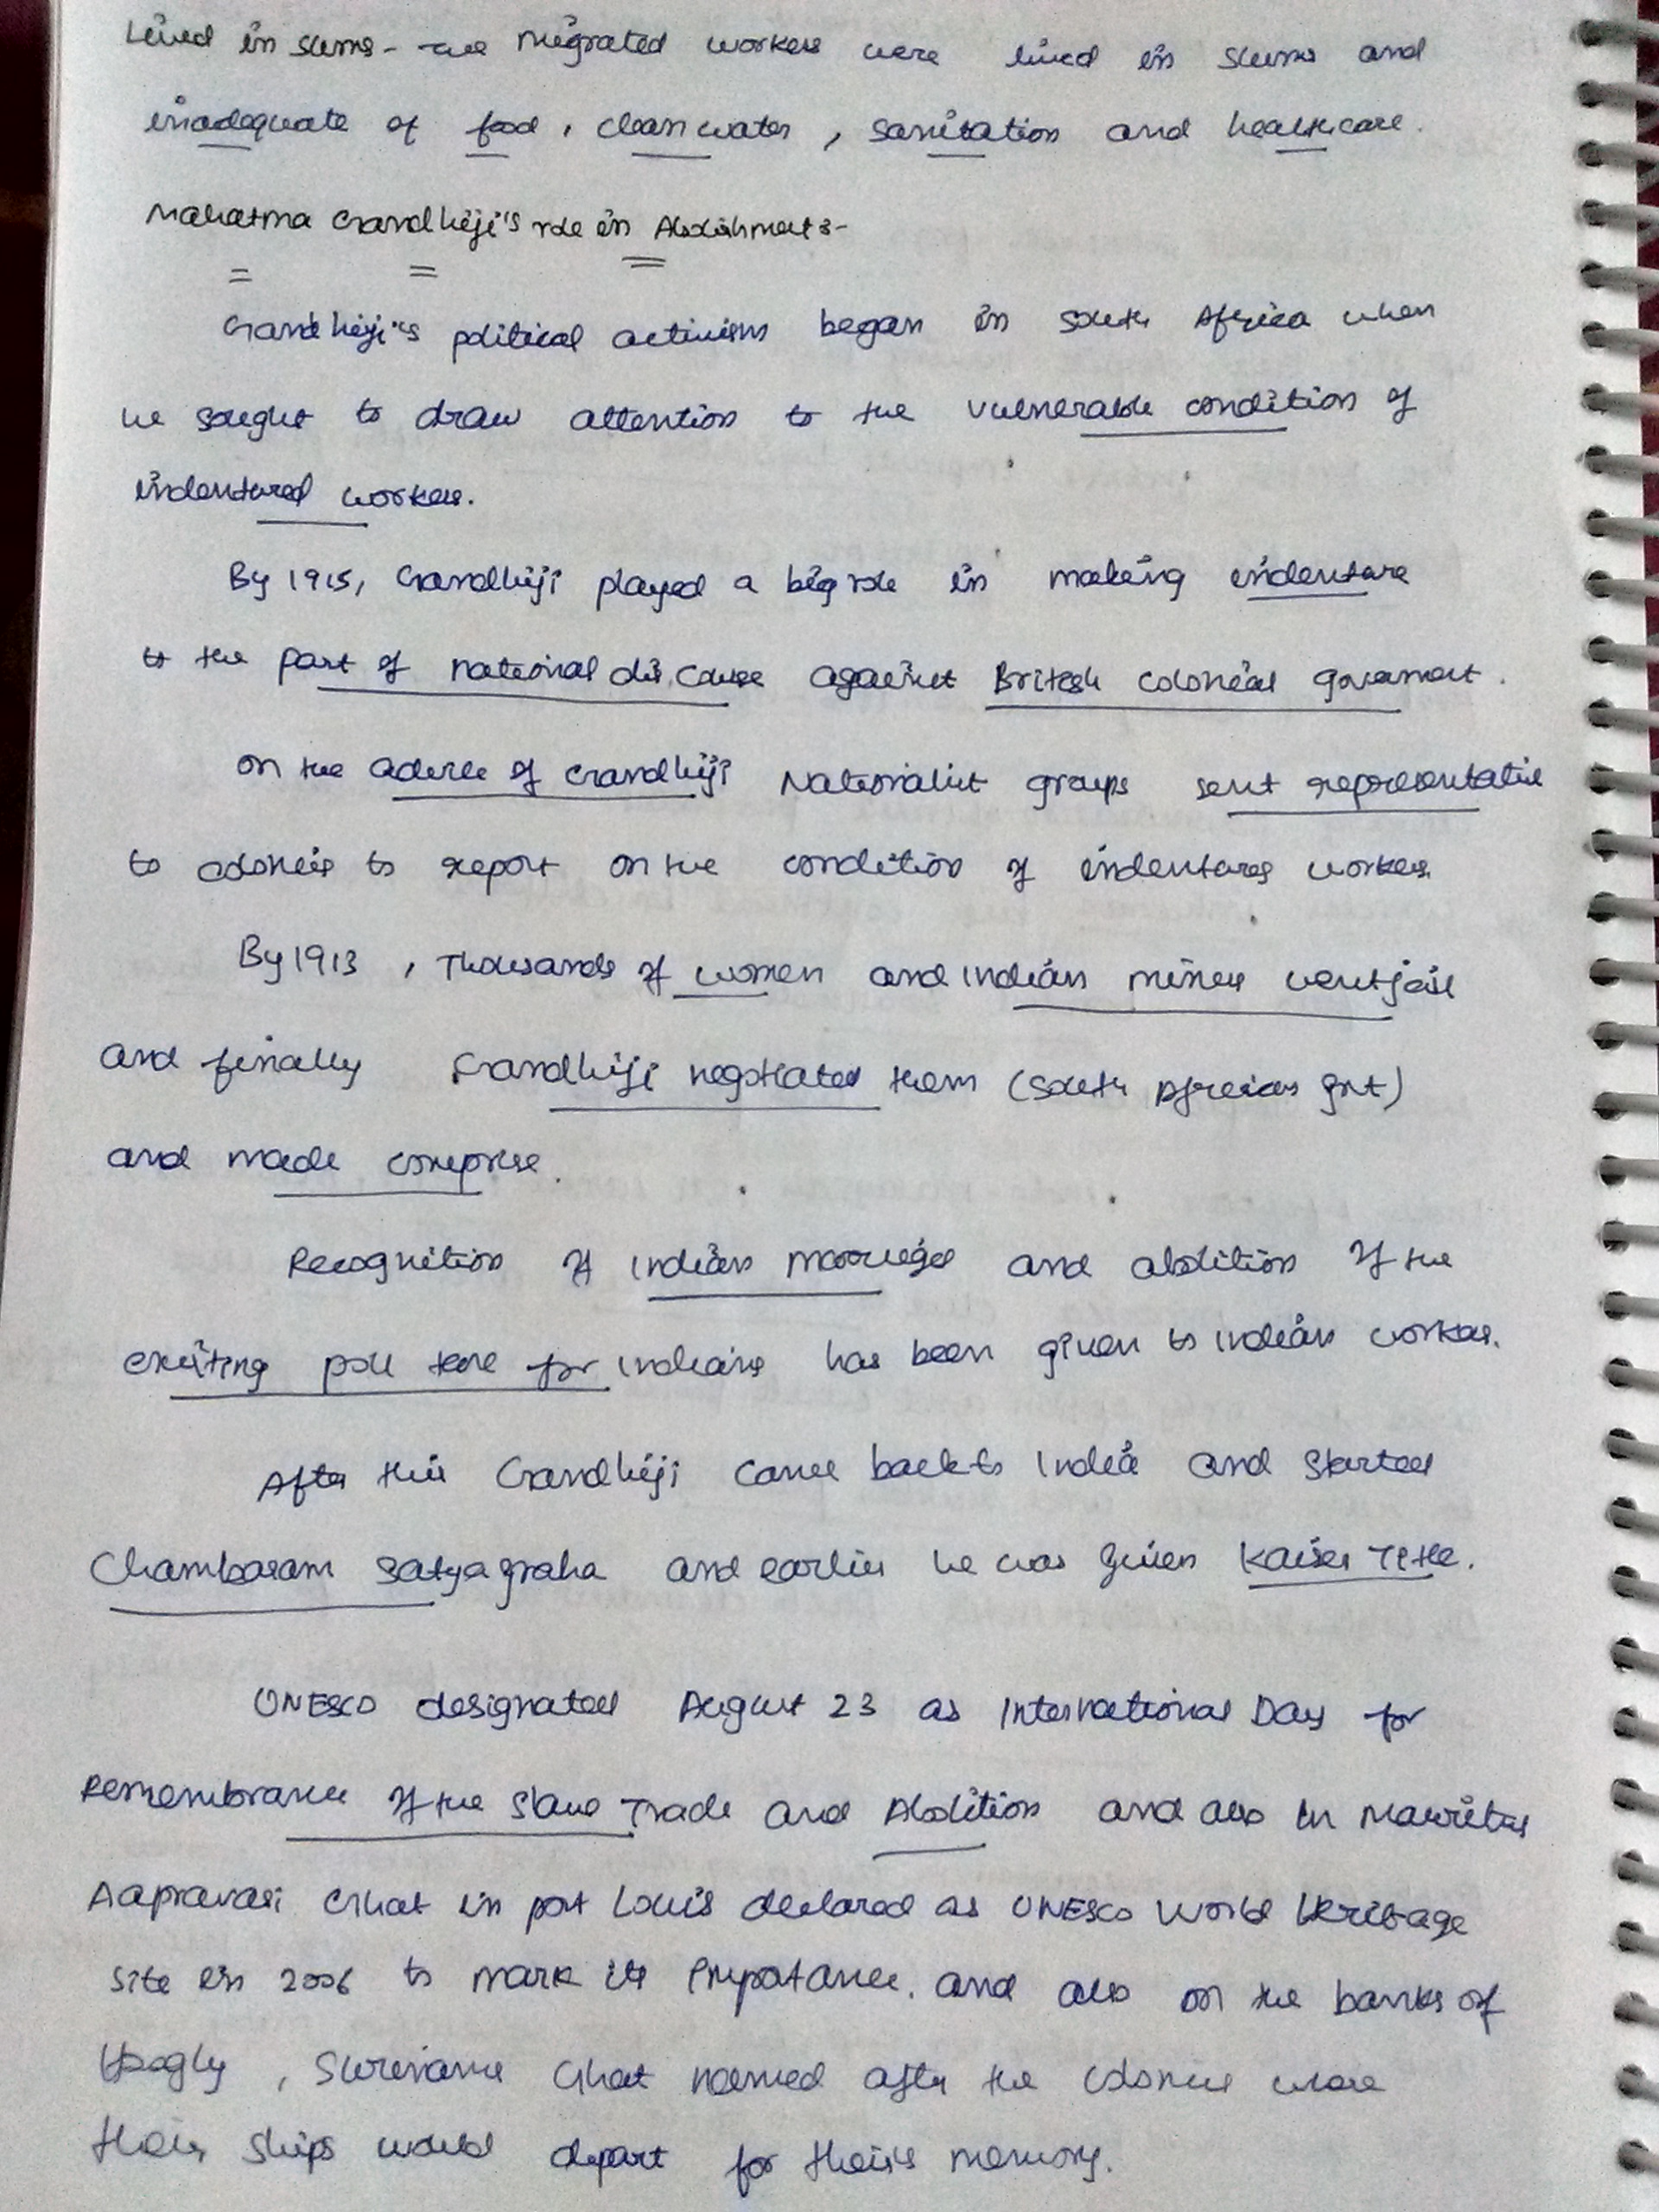 Lived in slums - The migrated workers were lived in slums and
inadequate of food, clean water, sanitation and healthcare.
Mahatma Gandhiji's role in Abolishment:-
Gandhiji's political activism began in South Africa when
he sought to draw attention to the vulnerable condition of
indentured workers.
By 1915, Gandhiji played a big role in making indenture
to the part of national discourse against British colonial government.
On the advice of Gandhiji Nationalist groups sent representative
to colonies to report on the condition of indentures workers.
By 1913, Thousands of women and Indian miners went jail
and finally Gandhiji negotiated them (South African gvt)
and made comprise.
Recognition of Indian marriages and abolition of the
existing poll tax for Indians has been given to Indian workers.
After this Gandhiji came back to India and started
Chambaram Satyagraha and earlier he was given Kaiser Title.
UNESCO designated August 23 as International Day for
Remembrance of the Slave Trade and Abolition and also in Mauritus
Aapravasi Ghat in port Louis declared as UNESCO World Heritage
site in 2006 to mark its importance. and also on the banks of
Hoogly, Suriname Ghat named after the colonies where
their ships would depart for their memory.